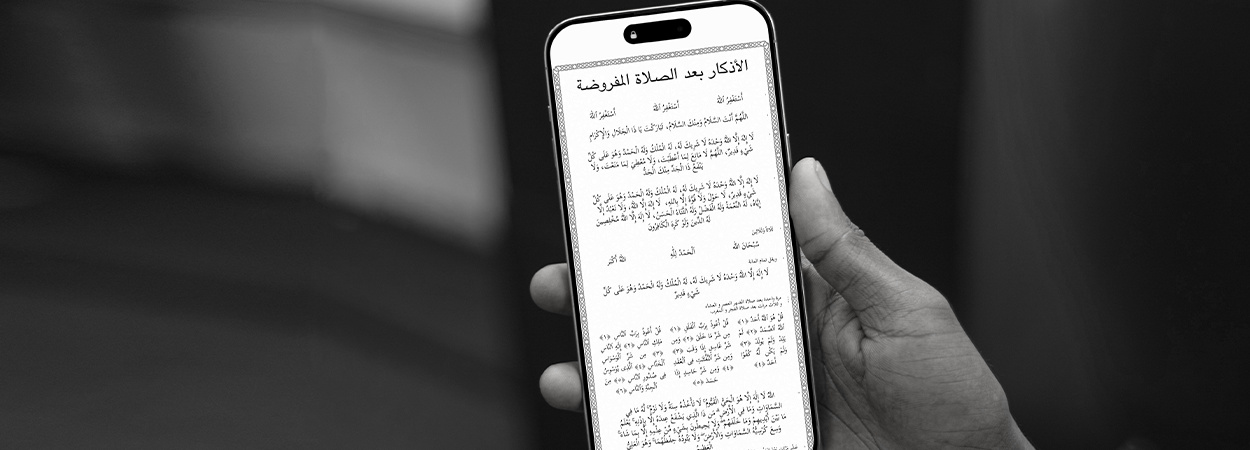 الأذكار بعد الصلاة المفروضة
أَسْتَغْفِرُ اللهَ أَسْتَغْفِرُ اللهَ أَسْتَغْفِرُ اللهَ
اللَّهُمَّ أَنْتَ السَّلَامُ وَمِنْكَ السَّلَامُ، تَبَارَكْتَ يَا ذَا الْجَلَالِ وَالْإِكْرَامِ
لَا إِلَهَ إِلَّا اللهُ وَحْدَهُ لَا شَرِيكَ لَهُ، لَهُ الْمُلْكُ وَلَهُ الْحَمْدُ وَهُوَ عَلَى كُلِّ
شَيْءٍ قَدِيرٌ، اللَّهُمَّ لَا مَانِعَ لِمَا أَعْطَيْتَ، وَلَا مُعْطِيَ لِمَا مَنَعْتَ، وَلَا
يَنْفَعُ ذَا الْجَدِّ مِنْكَ الْجَدُّ
لَا إِلَهَ إِلَّا اللهُ وَحْدَهُ لَا شَرِيكَ لَهُ، لَهُ الْمُلْكُ وَلَهُ الْحَمْدُ وَهُوَ عَلَى كُلِّ
شَيْءٍ قَدِيرٌ، لَا حَوْلَ وَلَا قُوَّةَ إِلَّا بِاللهِ، لَا إِلَهَ إِلَّا اللهُ، وَلَا نَعْبُدُ إِلَّا
إِيَّاهُ، لَهُ النِّعْمَةُ وَلَهُ الْفَضْلُ وَلَهُ الثَّنَاءُ الْحَسَنُ، لَا إِلَهَ إِلَّا اللهُ مُخْلِصِينَ
لَهُ الدِّينَ وَلَوْ كَرِهَ الْكَافِرُونَ
ثلاثا وثلاثين
سُبْحَانَ اللهِ الْحَمْدُ لِلَّهِ اللهُ أَكْبَرُ
ويقول تمام المائة
لَا إِلَهَ إِلَّا اللهُ وَحْدَهُ لَا شَرِيكَ لَهُ، لَهُ الْمُلْكُ وَلَهُ الْحَمْدُ وَهُوَ عَلَى كُلِّ
شَيْءٍ قَدِيرٌ
مرة واحدة بعد صلاة الظهر العصر و العشاء
و ثلاث مرات بعد صلاة الفجر و المغرب
قُلْ هُوَ اللَّهُ أَحَدٌ ﴿١﴾
اللَّهُ الصَّمَدُ ﴿٢﴾ لَمْ
يَلِدْ وَلَمْ يُولَدْ ﴿٣﴾
وَلَمْ يَكُن لَّهُ كُفُوًا
أَحَدٌ ﴿٤﴾
قُلْ أَعُوذُ بِرَبِّ الْفَلَقِ ﴿١﴾
مِن شَرِّ مَا خَلَقَ ﴿٢﴾ وَمِن
شَرِّ غَاسِقٍ إِذَا وَقَبَ ﴿٣﴾
وَمِن شَرِّ النَّفَّاثَاتِ فِي الْعُقَدِ
﴿٤﴾ وَمِن شَرِّ حَاسِدٍ إِذَا
حَسَدَ ﴿٥﴾
قُلْ أَعُوذُ بِرَبِّ النَّاسِ ﴿١﴾
مَلِكِ النَّاسِ ﴿٢﴾ إِلَٰهِ النَّاسِ
﴿٣﴾ مِن شَرِّ الْوَسْوَاسِ
الْخَنَّاسِ ﴿٤﴾ الَّذِي يُوَسْوِسُ
فِي صُدُورِ النَّاسِ ﴿٥﴾ مِنَ
الْجِنَّةِ وَالنَّاسِ ﴿٦﴾
اللَّهُ لَا إِلَٰهَ إِلَّا هُوَ الْحَيُّ الْقَيُّومُ ۚ لَا تَأْخُذُهُ سِنَةٌ وَلَا نَوْمٌ ۚ لَّهُ مَا فِي
السَّمَاوَاتِ وَمَا فِي الْأَرْضِ ۗ مَن ذَا الَّذِي يَشْفَعُ عِندَهُ إِلَّا بِإِذْنِهِ ۚ يَعْلَمُ
مَا بَيْنَ أَيْدِيهِمْ وَمَا خَلْفَهُمْ ۖ وَلَا يُحِيطُونَ بِشَيْءٍ مِّنْ عِلْمِهِ إِلَّا بِمَا شَاءَ ۚ
وَسِعَ كُرْسِيُّهُ السَّمَاوَاتِ وَالْأَرْضَ ۖ وَلَا يَئُودُهُ حِفْظُهُمَا ۚ وَهُوَ الْعَلِيُّ
الْعَظِيمُ